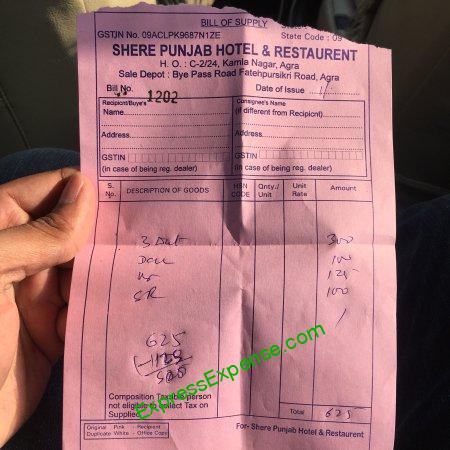 BILL OF SUPPLY
GSTIN No. 09ACLPK9687N1ZE State Code : 09
SHERE PUNJAB HOTEL & RESTAURENT
H. O. : C-2/24, Kamla Nagar, Agra
Sale Depot : Bye Pass Road Fatehpursikri Road, Agra
Bill No. 1202 Date of Issue
Recipicnt/Buye's Consignee's Name
Name (if different from Recipicnf)
Address Address
GSTIN GSTIN
(in case of being reg. dealer) (in case of being reg. dealer)
S. No. DESCRIPTION OF GOODS HSN CODE Qnty./ Unit Unit Rate Amount
3 300
100
125
100
625
ExpressExpense.com
Composition Taxable person
not eligible to collect Tax on
Supplied
Total 625
Original Pink - Recipient
Duplicate White - Office Copy
For- Shere Punjab Hotel & Restaurent